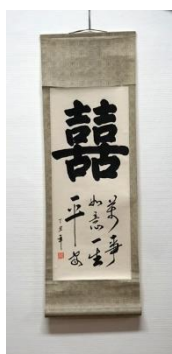 囍
萬事
如意一生
平安